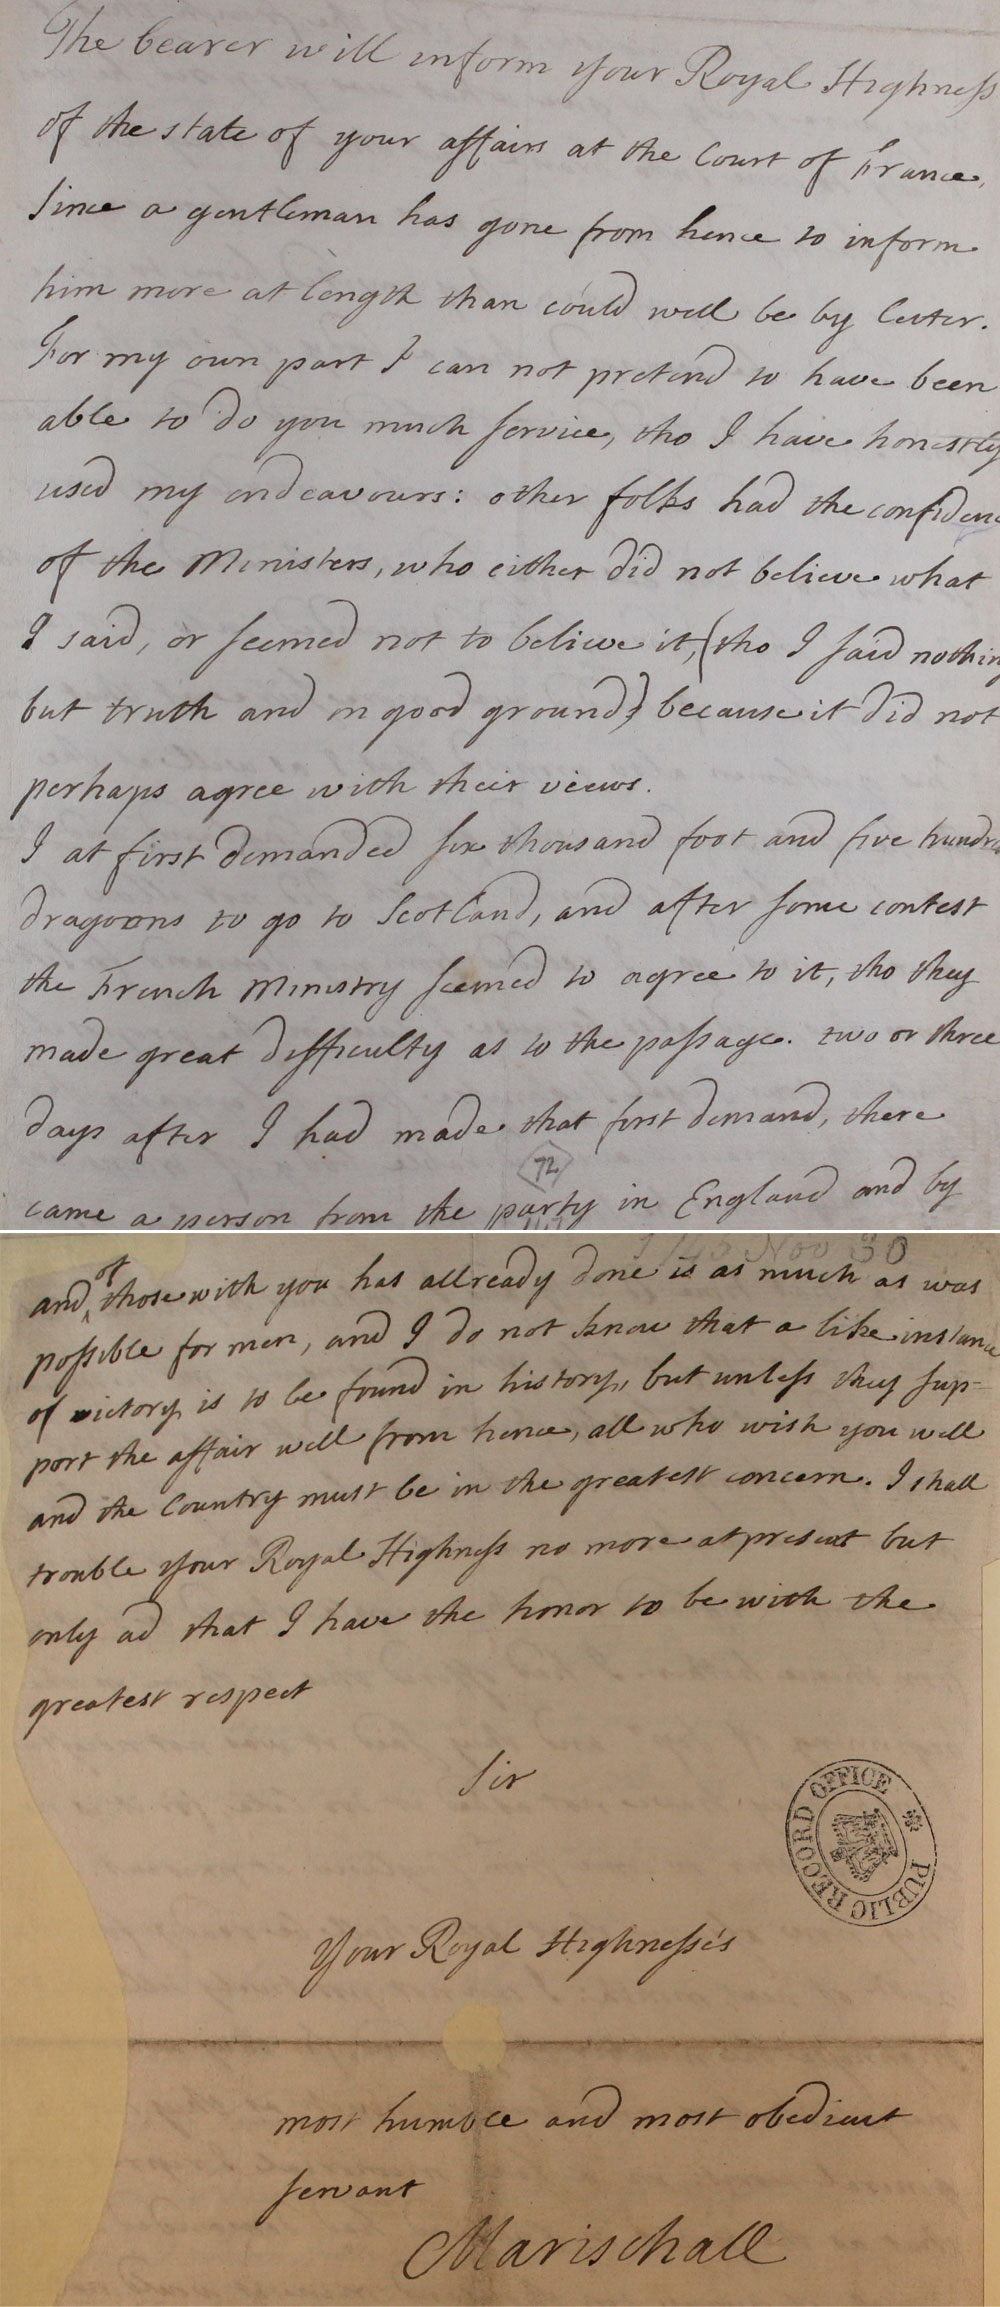 The bearer will inform your Royal Highness
of the state of your affairs at the Court of France,
Since a gentleman has gone from hence to inform
him more at length than could well be by letter.
For my own part I can not pretend to have been
able to do you much service, tho I have honestly
used my endeavours: other folks had the confidence
of the Ministers, who either did not believe what
I said, or seemed not to believe it, (tho I said nothing
but truth and on good ground) because it did not
perhaps agree with their views.
I at first demanded six thousand foot and five hundred
dragoons to go to Scotland, and after some contest
the French Ministry seemed to agree to it, tho they
made great difficulty as to the passage. two or three
days after I had made that first demand, there
72
came a person from the party in England and by
1745 Nov 30
and of those with you has allready done is as much as was
possible for men, and I do not know that a like instance
of victory is to be found in history, but unless they sup-
port the affair well from hence, all who wish you well
and the Country must be in the greatest concern. I shall
trouble your Royal Highness no more at present but
only ad that I have the honor to be with the
greatest respect
Sir
PUBLIC RECORD OFFICE
Your Royal Highness's
most humble and most obedient
servant
Marischall